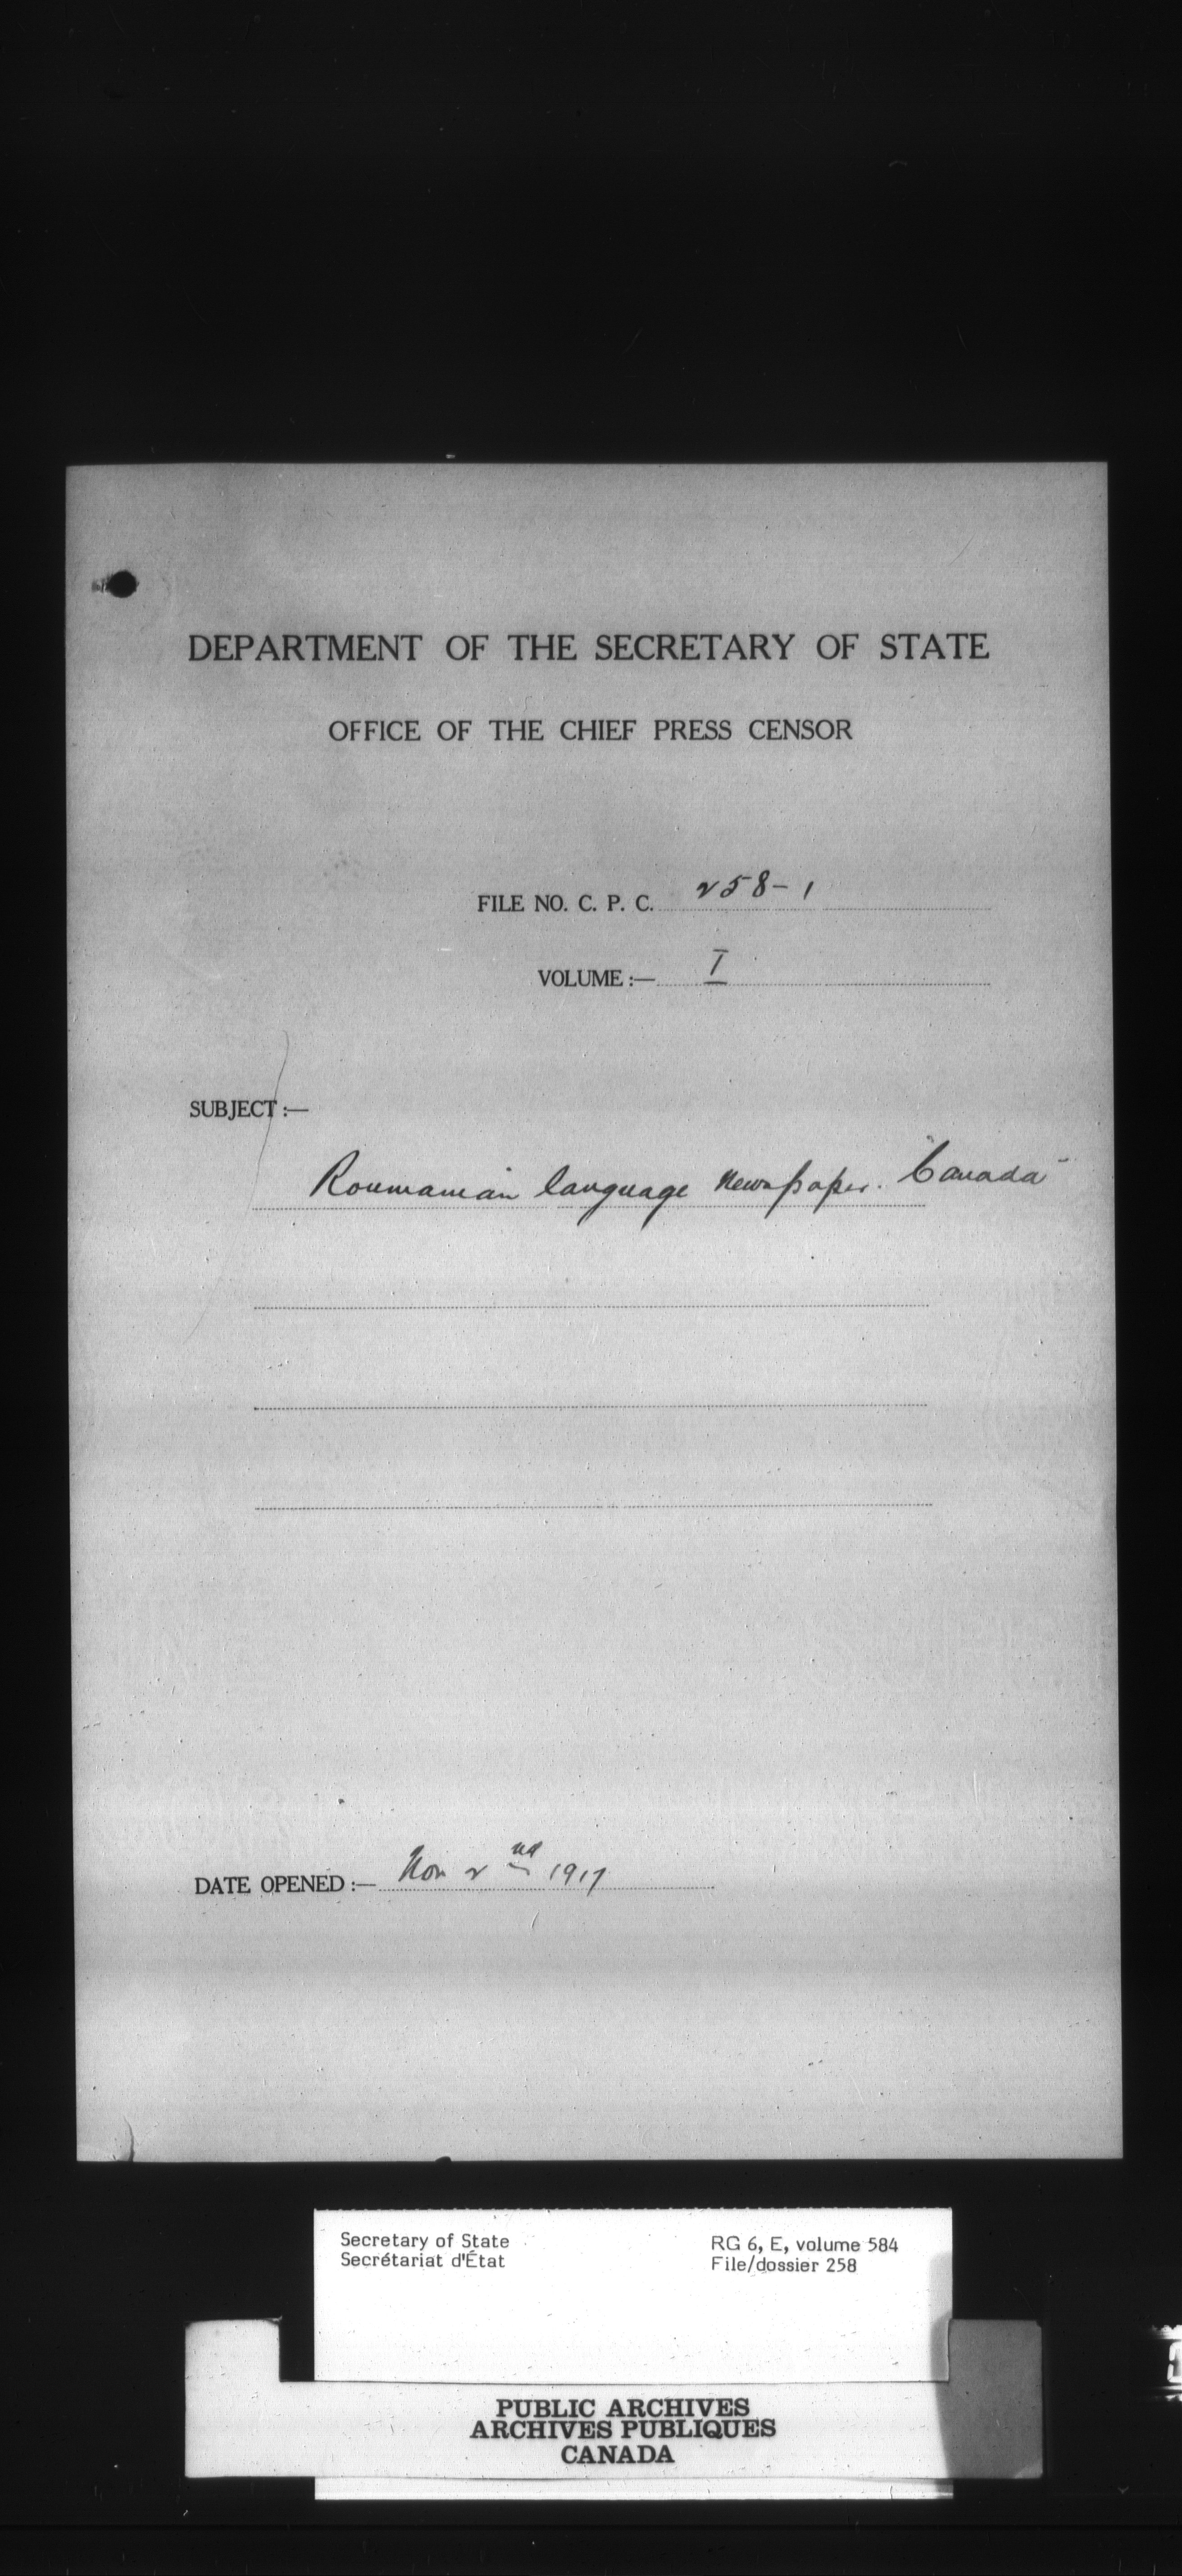 DEPARTMENT OF THE SECRETARY OF STATE
OFFICE OF THE CHIEF PRESS CENSOR
FILE NO. C. P. C. 258-1
VOLUME :— I
SUBJECT :—
Roumanian language Newspaper. "Canada"
DATE OPENED :— Nov 2nd 1917
Secretary of State
Secrétariat d'État
RG 6, E, volume 584
File/dossier 258
PUBLIC ARCHIVES
ARCHIVES PUBLIQUES
CANADA